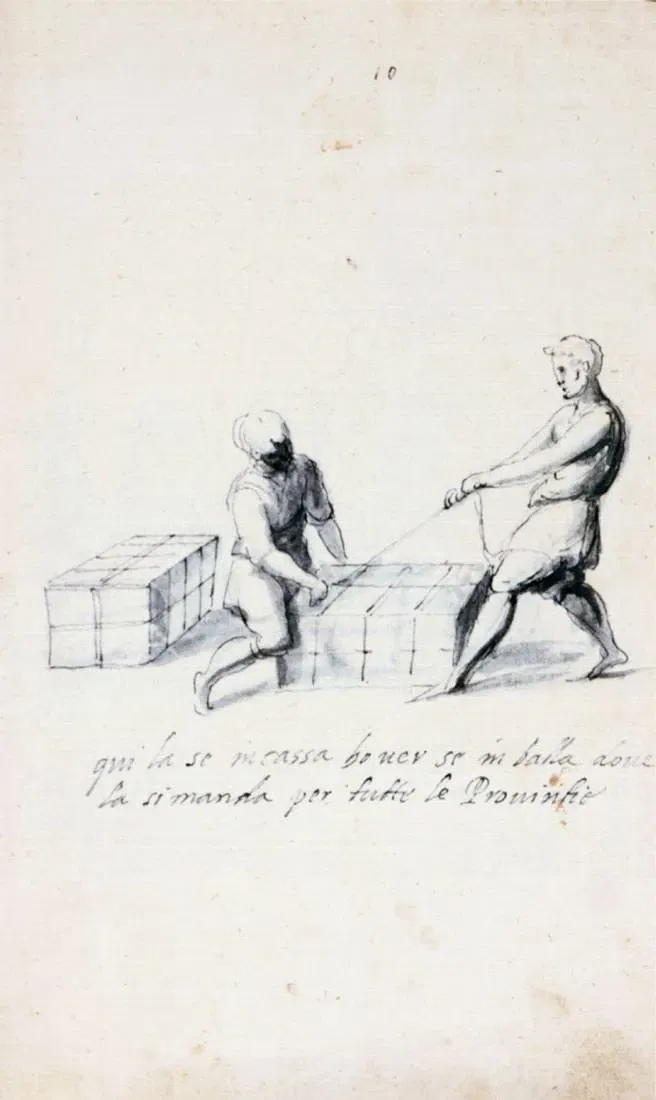 10
qui la se incassa hover se in balla dove
la si manda per tutte le Provintie